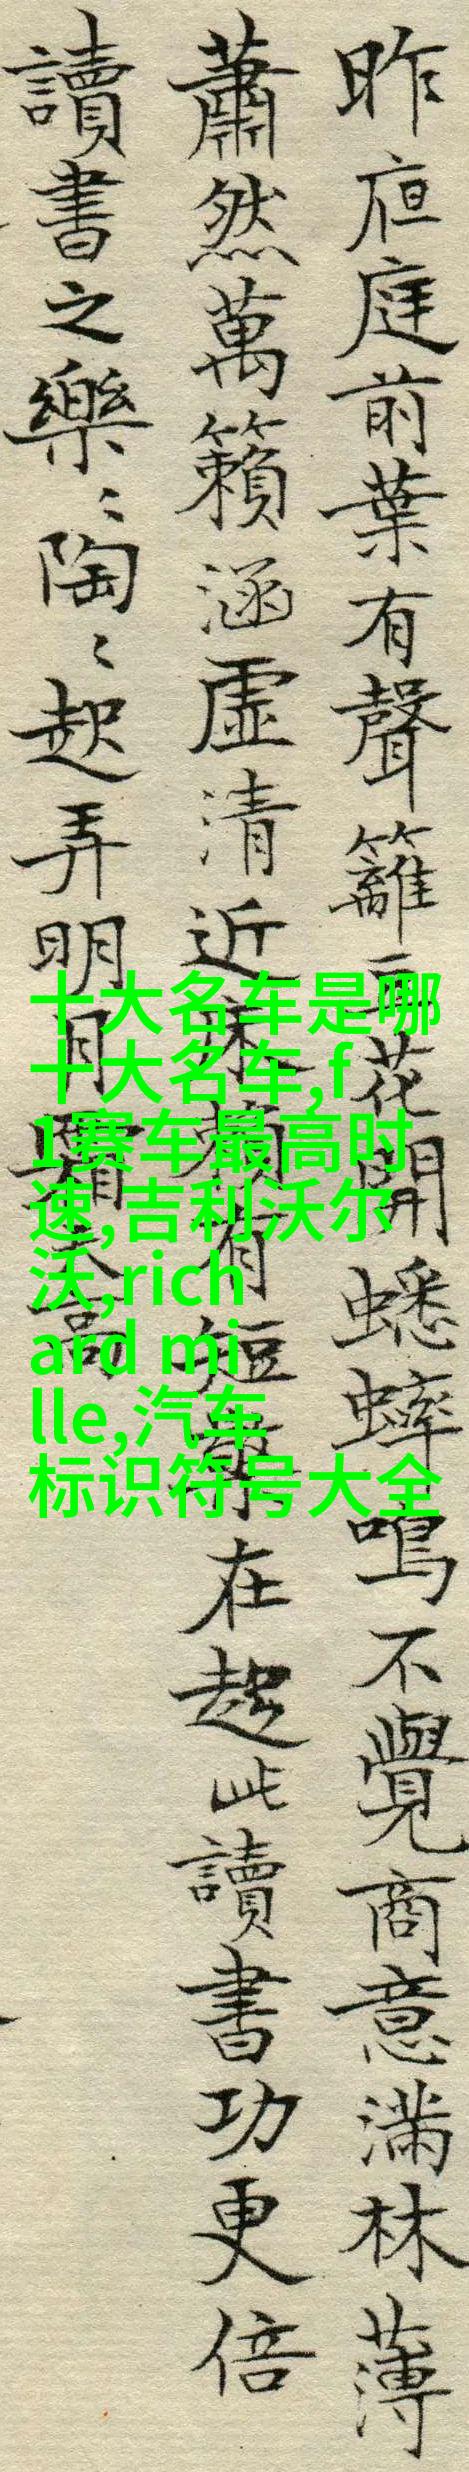 昨夜庭前葉有聲籬豆花開蟋蟀鳴不覺商意滿林薄
蕭然萬籟涵虛清近床賴有短檠在趁此讀書功更倍
讀書之樂〻陶〻起弄明月霜天高
十大名车是哪
十大名车,f
1赛车最高时
速,吉利沃尔
沃,rich
ard mi
lle,汽车
标识符号大全